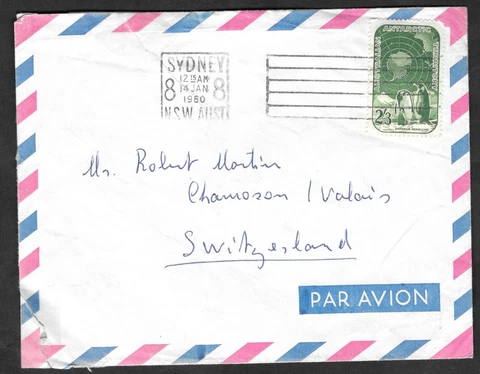 SYDNEY
12 15 AM
8 14 JAN 8
1960
N.S.W. AUST
ANTARCTIC
2/3
Mr. Robert Martin
Chamoson / Valais
Switzerland
PAR AVION